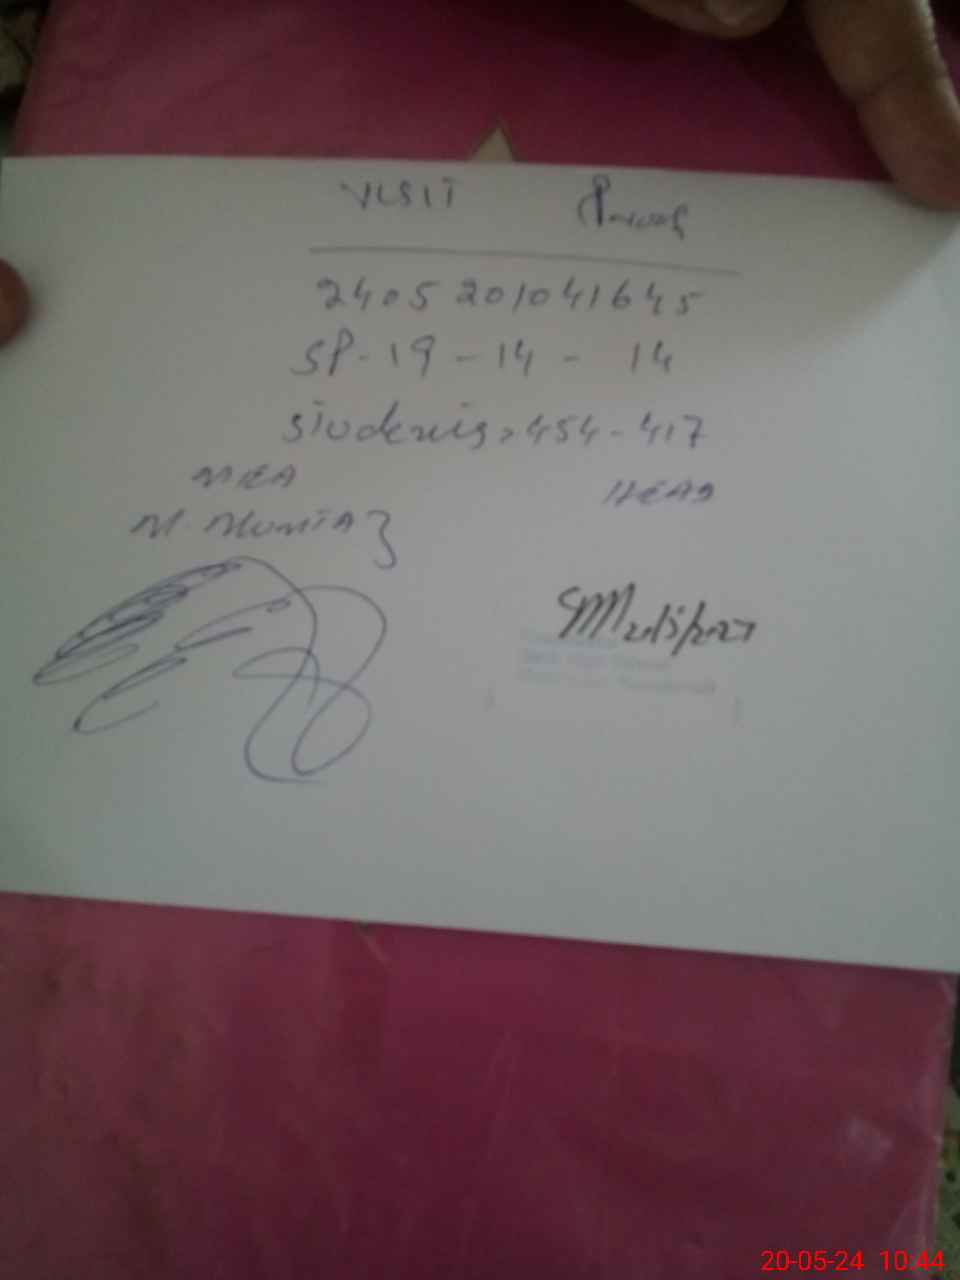 VISIT Proof
2405201041645
SP-19-14-14
Students > 454-417
MEA
HEAD
M. Mumtaz
20-05-24 10:44